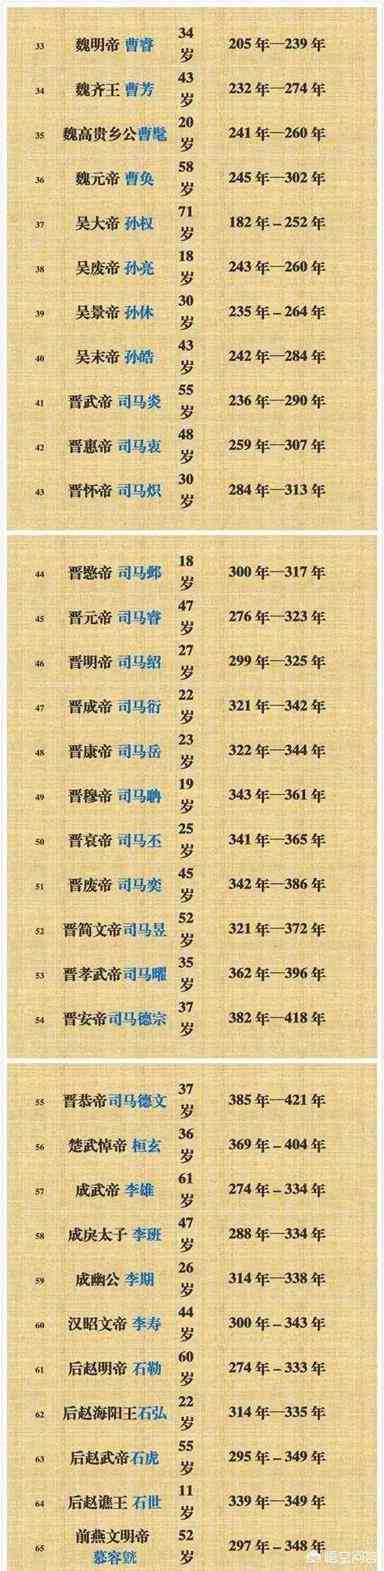 33 魏明帝 曹睿 34岁 205年—239年
34 魏齐王 曹芳 43岁 232年—274年
35 魏高贵乡公曹髦 20岁 241年—260年
36 魏元帝 曹奂 58岁 245年—302年
37 吴大帝 孙权 71岁 182年–252年
38 吴废帝 孙亮 18岁 243年—260年
39 吴景帝 孙休 30岁 235年–264年
40 吴末帝 孙皓 43岁 242年—284年
41 晋武帝 司马炎 55岁 236年—290年
42 晋惠帝 司马衷 48岁 259年—307年
43 晋怀帝 司马炽 30岁 284年—313年
44 晋愍帝 司马邺 18岁 300年—317年
45 晋元帝 司马睿 47岁 276年—323年
46 晋明帝 司马绍 27岁 299年—325年
47 晋成帝 司马衍 22岁 321年—342年
48 晋康帝 司马岳 23岁 322年—344年
49 晋穆帝 司马聃 19岁 343年—361年
50 晋哀帝 司马丕 25岁 341年—365年
51 晋废帝 司马奕 45岁 342年—386年
52 晋简文帝司马昱 52岁 321年—372年
53 晋孝武帝司马曜 35岁 362年—396年
54 晋安帝司马德宗 37岁 382年—418年
55 晋恭帝司马德文 37岁 385年—421年
56 楚武悼帝 桓玄 36岁 369年–404年
57 成武帝 李雄 61岁 274年–334年
58 成戾太子 李班 47岁 288年—334年
59 成幽公 李期 26岁 314年—338年
60 汉昭文帝 李寿 44岁 300年–343年
61 后赵明帝 石勒 60岁 274年–333年
62 后赵海阳王石弘 22岁 314年—335年
63 后赵武帝石虎 55岁 295年–349年
64 后赵谯王 石世 11岁 339年—349年
65 前燕文明帝 慕容皝 52岁 297年–348年
悟空问答